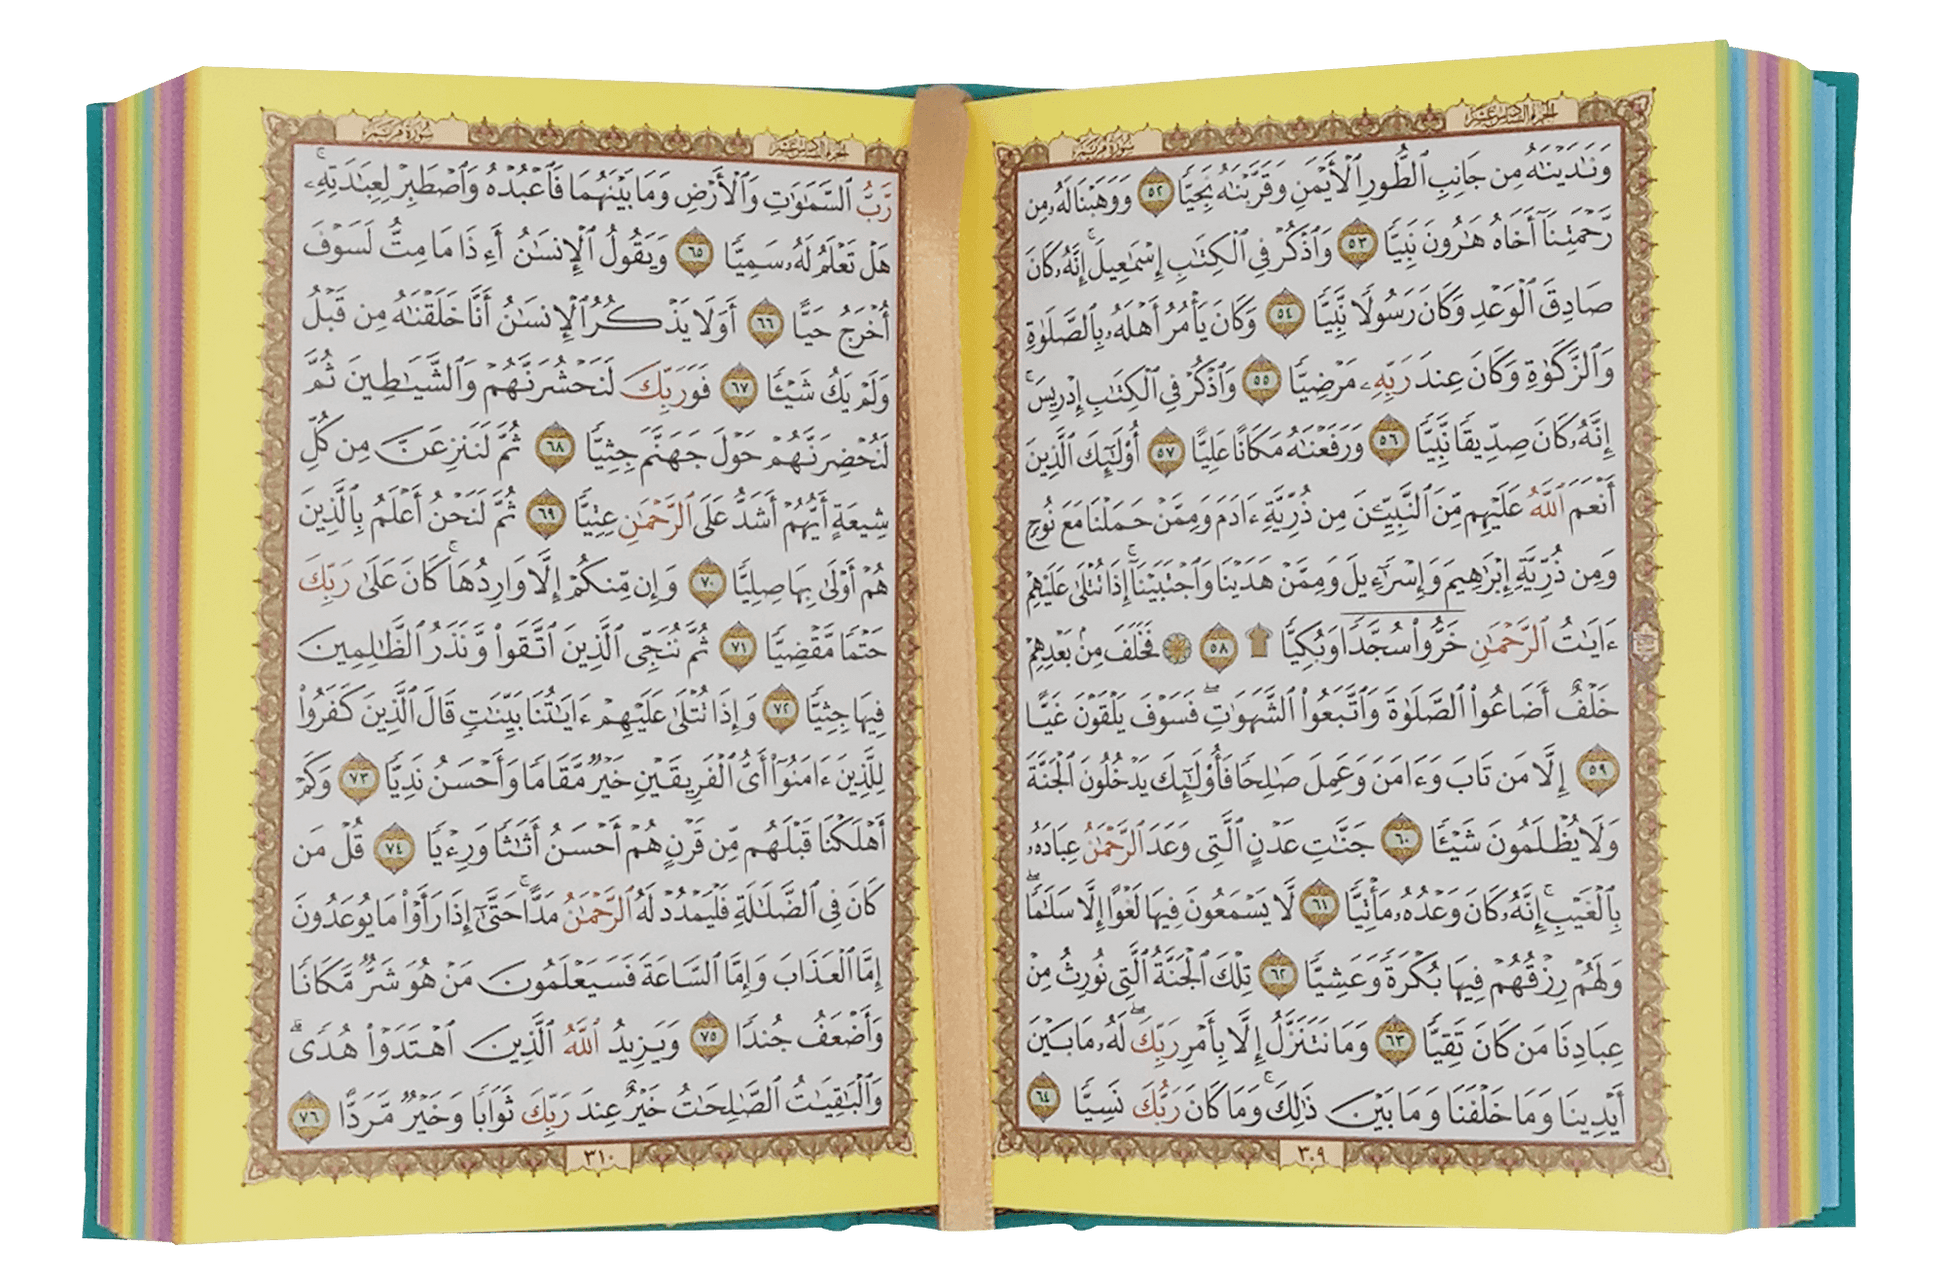 الجزء السادس عشر
سورة مريم
وَنَٰدَيْنَٰهُ مِن جَانِبِ ٱلطُّورِ ٱلْأَيْمَنِ وَقَرَّبْنَٰهُ نَجِيًّا ٥٢ وَوَهَبْنَا لَهُۥ مِن
رَّحْمَتِنَآ أَخَاهُ هَٰرُونَ نَبِيًّا ٥٣ وَٱذْكُرْ فِى ٱلْكِتَٰبِ إِسْمَٰعِيلَ ۚ إِنَّهُۥ كَانَ
صَادِقَ ٱلْوَعْدِ وَكَانَ رَسُولًا نَّبِيًّا ٥٤ وَكَانَ يَأْمُرُ أَهْلَهُۥ بِٱلصَّلَوٰةِ
وَٱلزَّكَوٰةِ وَكَانَ عِندَ رَبِّهِۦ مَرْضِيًّا ٥٥ وَٱذْكُرْ فِى ٱلْكِتَٰبِ إِدْرِيسَ ۚ
إِنَّهُۥ كَانَ صِدِّيقًا نَّبِيًّا ٥٦ وَرَفَعْنَٰهُ مَكَانًا عَلِيًّا ٥٧ أُو۟لَٰٓئِكَ ٱلَّذِينَ
أَنْعَمَ ٱللَّهُ عَلَيْهِم مِّنَ ٱلنَّبِيِّۦنَ مِن ذُرِّيَّةِ ءَادَمَ وَمِمَّنْ حَمَلْنَا مَعَ نُوحٍ
وَمِن ذُرِّيَّةِ إِبْرَٰهِيمَ وَإِسْرَٰٓءِيلَ وَمِمَّنْ هَدَيْنَا وَٱجْتَبَيْنَآ ۚ إِذَا تُتْلَىٰ عَلَيْهِمْ
ءَايَٰتُ ٱلرَّحْمَٰنِ خَرُّوا۟ سُجَّدًا وَبُكِيًّا ۩ ٥٨ ۞ فَخَلَفَ مِنۢ بَعْدِهِمْ
خَلْفٌ أَضَاعُوا۟ ٱلصَّلَوٰةَ وَٱتَّبَعُوا۟ ٱلشَّهَوَٰتِ ۖ فَسَوْفَ يَلْقَوْنَ غَيًّا
٥٩ إِلَّا مَن تَابَ وَءَامَنَ وَعَمِلَ صَٰلِحًا فَأُو۟لَٰٓئِكَ يَدْخُلُونَ ٱلْجَنَّةَ
وَلَا يُظْلَمُونَ شَيْـًٔا ٦٠ جَنَّٰتِ عَدْنٍ ٱلَّتِى وَعَدَ ٱلرَّحْمَٰنُ عِبَادَهُۥ
بِٱلْغَيْبِ ۚ إِنَّهُۥ كَانَ وَعْدُهُۥ مَأْتِيًّا ٦١ لَّا يَسْمَعُونَ فِيهَا لَغْوًا إِلَّا سَلَٰمًا ۖ
وَلَهُمْ رِزْقُهُمْ فِيهَا بُكْرَةً وَعَشِيًّا ٦٢ تِلْكَ ٱلْجَنَّةُ ٱلَّتِى نُورِثُ مِنْ
عِبَادِنَا مَن كَانَ تَقِيًّا ٦٣ وَمَا نَتَنَزَّلُ إِلَّا بِأَمْرِ رَبِّكَ ۖ لَهُۥ مَا بَيْنَ
أَيْدِينَا وَمَا خَلْفَنَا وَمَا بَيْنَ ذَٰلِكَ ۚ وَمَا كَانَ رَبُّكَ نَسِيًّا ٦٤
٣٠٩
الجزء السادس عشر
سورة مريم
رَّبُّ ٱلسَّمَٰوَٰتِ وَٱلْأَرْضِ وَمَا بَيْنَهُمَا فَٱعْبُدْهُ وَٱصْطَبِرْ لِعِبَٰدَتِهِۦ ۚ
هَلْ تَعْلَمُ لَهُۥ سَمِيًّا ٦٥ وَيَقُولُ ٱلْإِنسَٰنُ أَءِذَا مَا مِتُّ لَسَوْفَ
أُخْرَجُ حَيًّا ٦٦ أَوَلَا يَذْكُرُ ٱلْإِنسَٰنُ أَنَّا خَلَقْنَٰهُ مِن قَبْلُ
وَلَمْ يَكُ شَيْـًٔا ٦٧ فَوَرَبِّكَ لَنَحْشُرَنَّهُمْ وَٱلشَّيَٰطِينَ ثُمَّ
لَنُحْضِرَنَّهُمْ حَوْلَ جَهَنَّمَ جِثِيًّا ٦٨ ثُمَّ لَنَنزِعَنَّ مِن كُلِّ
شِيعَةٍ أَيُّهُمْ أَشَدُّ عَلَى ٱلرَّحْمَٰنِ عِتِيًّا ٦٩ ثُمَّ لَنَحْنُ أَعْلَمُ بِٱلَّذِينَ
هُمْ أَوْلَىٰ بِهَا صِلِيًّا ٧٠ وَإِن مِّنكُمْ إِلَّا وَارِدُهَا ۚ كَانَ عَلَىٰ رَبِّكَ
حَتْمًا مَّقْضِيًّا ٧١ ثُمَّ نُنَجِّى ٱلَّذِينَ ٱتَّقَوا۟ وَّنَذَرُ ٱلظَّٰلِمِينَ
فِيهَا جِثِيًّا ٧٢ وَإِذَا تُتْلَىٰ عَلَيْهِمْ ءَايَٰتُنَا بَيِّنَٰتٍ قَالَ ٱلَّذِينَ كَفَرُوا۟
لِلَّذِينَ ءَامَنُوٓا۟ أَىُّ ٱلْفَرِيقَيْنِ خَيْرٌ مَّقَامًا وَأَحْسَنُ نَدِيًّا ٧٣ وَكَمْ
أَهْلَكْنَا قَبْلَهُم مِّن قَرْنٍ هُمْ أَحْسَنُ أَثَٰثًا وَرِءْيًا ٧٤ قُلْ مَن
كَانَ فِى ٱلضَّلَٰلَةِ فَلْيَمْدُدْ لَهُ ٱلرَّحْمَٰنُ مَدًّا ۚ حَتَّىٰٓ إِذَا رَأَوْا۟ مَا يُوعَدُونَ
إِمَّا ٱلْعَذَابَ وَإِمَّا ٱلسَّاعَةَ فَسَيَعْلَمُونَ مَنْ هُوَ شَرٌّ مَّكَانًا
وَأَضْعَفُ جُندًا ٧٥ وَيَزِيدُ ٱللَّهُ ٱلَّذِينَ ٱهْتَدَوْا۟ هُدًى ۗ
وَٱلْبَٰقِيَٰتُ ٱلصَّٰلِحَٰتُ خَيْرٌ عِندَ رَبِّكَ ثَوَابًا وَخَيْرٌ مَّرَدًّا ٧٦
٣١٠